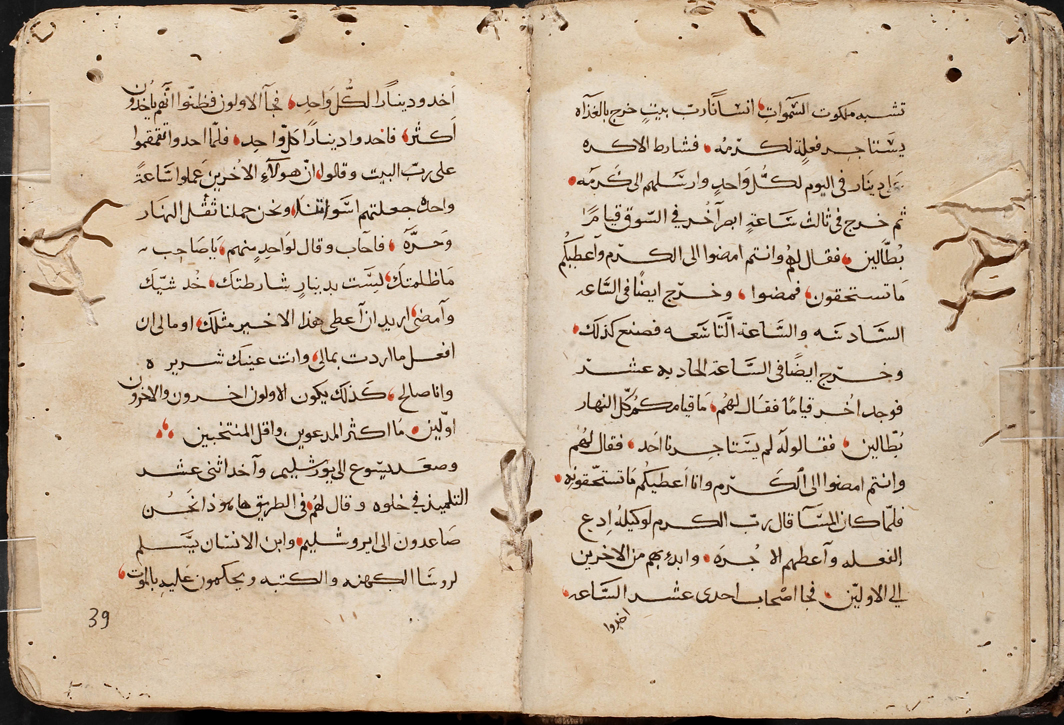 تشبه ملكوت السموات انسانًا رب بيتٍ خرج بالغداه
يستاجر فعلةٍ لكرمُه فشارط الاكره
دينار في اليوم لكُل وَاحدٍ وارسَلهم الى كَرمَه
ثم خرج فى ثالث سَاعةٍ ابصر آخر في السّوق قيامًا
بُطّالين فقال لهُم وانتم امضوا الى الكرم وآعطيكُم
مَا تستحقون فمضوا وخرّج ايضًا في السّاعه
السَّادسَه والسَّاعة التَّاسَعه فصنع كذلك
وخرّج ايضًا فى السَّاعة الحاديه عشرّ
فوجد اخُر قيامًا فقال لهُم مَا قيامكُم كُلّ النهار
بُطّالين فقالو لَه لم يستَاجرنا احَد فقال لهُم
وانتم امضوا الى الكَرم وانا اعَطيكُم مَا تستحقّونه
فلمّا كان المسَآ قال ربّ الكرم لوكيله ادع
الفعله وآعطهم الاجُره وابدء بهم من الاخرين
الي الاولين فجا اصحاب احدى عشر السّاعه
اخدوا
آخدو دينارًا لكُل وَاحدٍ فجآ الاولون فظنّوا انّهم ياخُدون
آكثر فاخدوا دينارًا كلّ واحدٍ فلمّا اخدوا تقمقموا
على ربّ البيت وقلوا انّ هولآءِ الاخرين عَملوا سَاعةً
واحده جعلتهم اسَوتنا ونحن حملنا ثقل النهار
وَحرّه فاجاب وقال لوَاحدٍ منهم يا صَاحب
مَا ظلمتك ليسَت بدينارٍ شارطتك خُد شيّك
وآمضى اريد ان آعطى هذا الاخير مثلك او ما لى ان
افعل ما اردت بمالى وانت عينك شرير ه
وانا صالح كَذلك يكون الاولون اخرون والاخرون
اولّين مَا اكثر المدعوين واقل المنتخبين
وصعَد يسّوع الى يورشليم وآخد اثنى عشر
التلميذ في خلوه وقال لهُم فى الطريق هَا هوذا نحُن
صَاعدون الى ايروشليم وابن الانسَان يسَلم
لروسَا الكهنه والكتبه ويحكمون عليهِ بالموُت
39